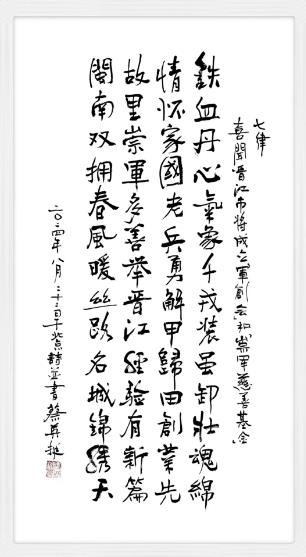 七律
喜聞晉江市將成立軍創会和崇軍慈善基金
鉄血丹心氣象千戎装虽卸壯魂綿
情懷家國老兵勇解甲歸田創業先
故里崇軍多善举晉江经验有新篇
閩南双拥春風暖丝路名城錦绣天
二〇二四年八月二十二日于北京並書蔡英挺